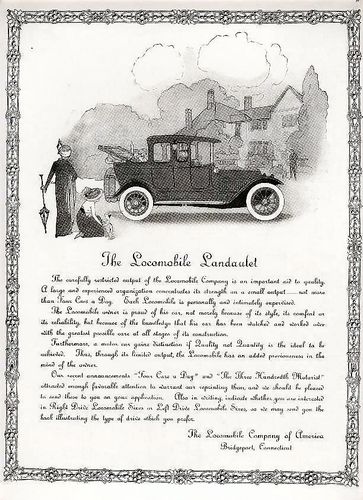 The Locomobile Landaulet
The carefully restricted output of the Locomobile Company is an important aid to quality.
A large and experienced organization concentrates its strength on a small output — not more
than Four Cars a Day. Each Locomobile is personally and intimately supervised.
The Locomobile owner is proud of his car, not merely because of its style, its comfort or
its reliability, but because of the knowledge that his car has been watched and worked over
with the greatest possible care at all stages of its construction.
Furthermore, a motor car gains distinction if Quality not Quantity is the ideal to be
achieved. Thus, through its limited output, the Locomobile has an added preciousness in the
mind of the owner.
Our recent announcements "Four Cars a Day" and "The Three Hundredth Motorist"
attracted enough favorable attention to warrant our reprinting them, and we should be pleased
to send these to you on your application. Also in writing, indicate whether you are interested
in Right Drive Locomobile Sixes or Left Drive Locomobile Sixes, so we may send you the
book illustrating the type of drive which you prefer.
The Locomobile Company of America
Bridgeport, Connecticut